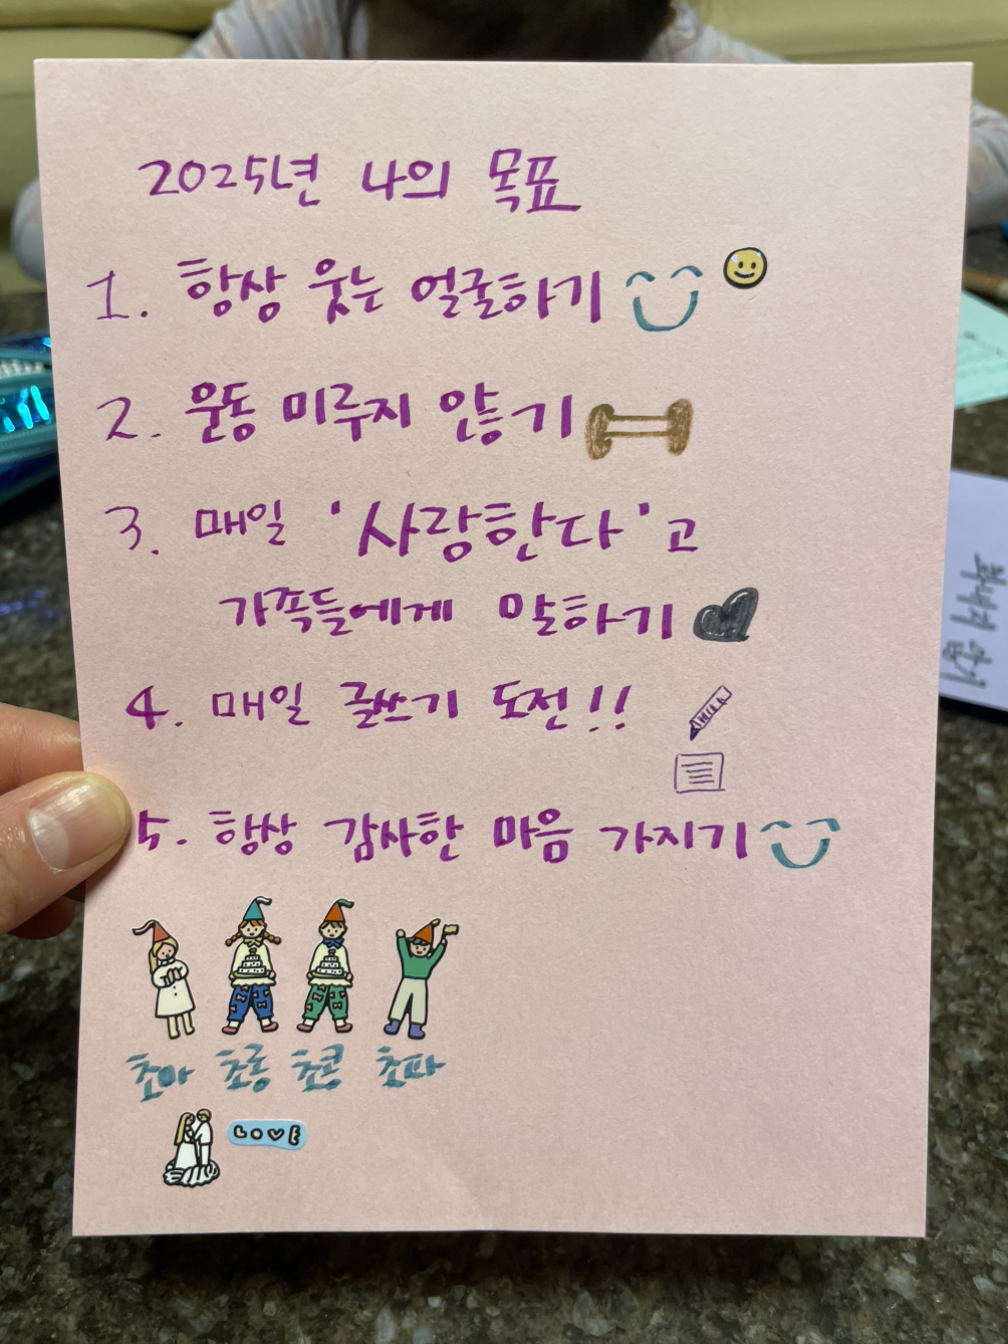 2025년 나의 목표
1. 항상 웃는 얼굴하기
2. 운동 미루지 않기
3. 매일 '사랑한다'고
가족들에게 말하기
4. 매일 글쓰기 도전!!
5. 항상 감사한 마음 가지기
초마 초롱 초콩 초파
LOVE